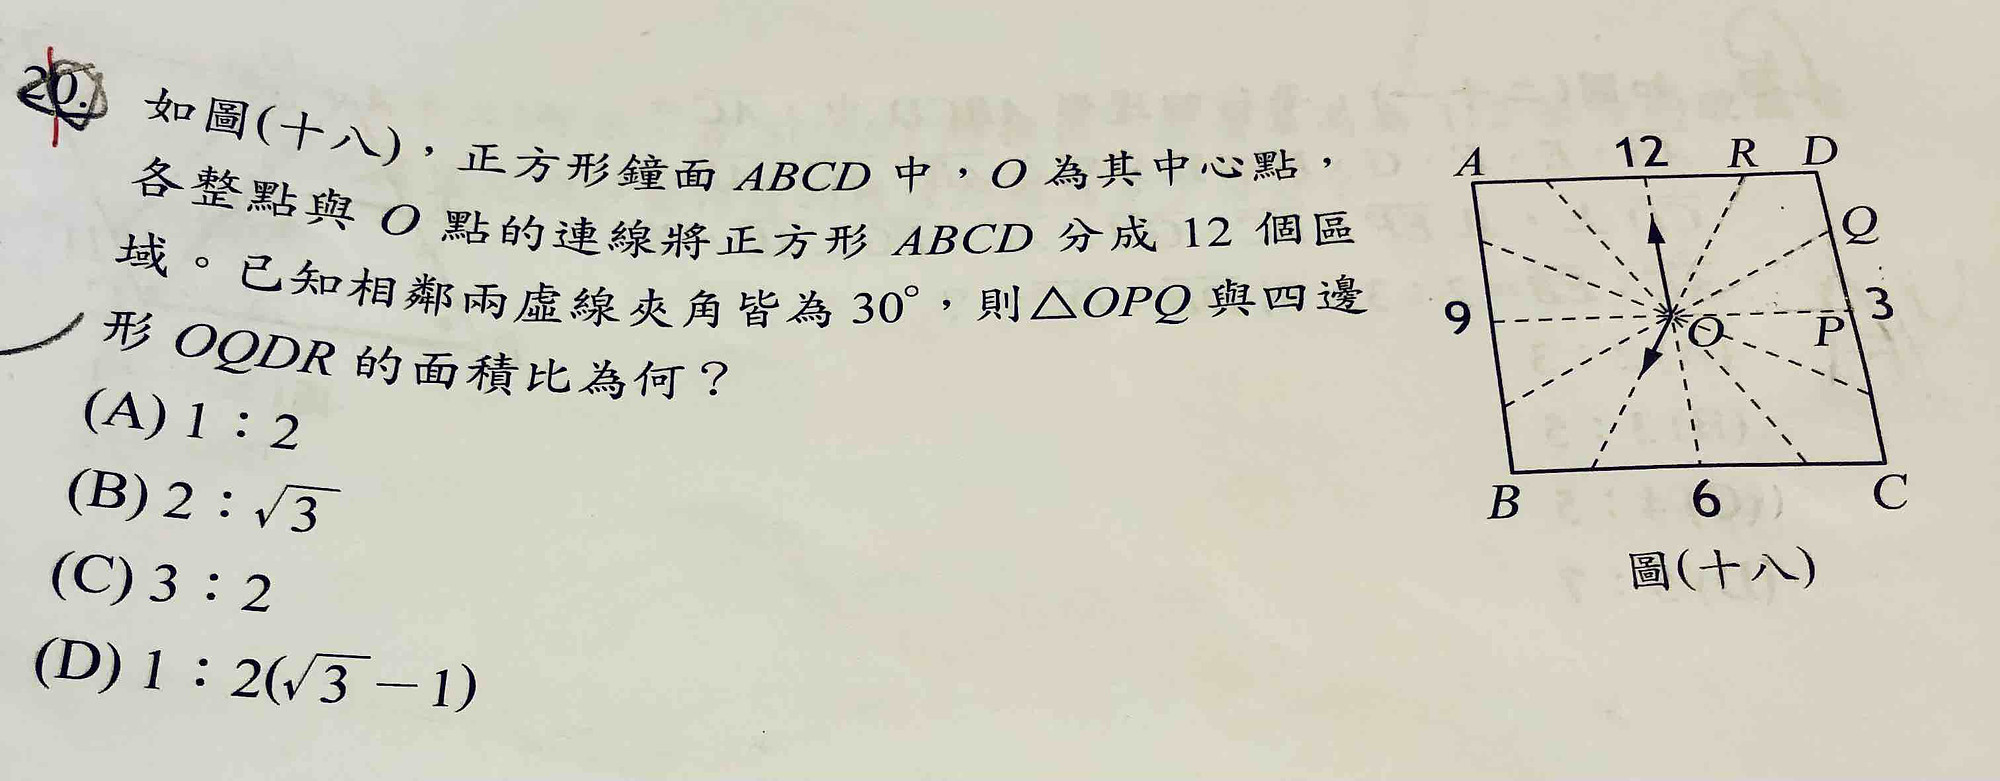 20. 如圖(十八)，正方形鐘面 ABCD 中，O 為其中心點，
各整點與 O 點的連線將正方形 ABCD 分成 12 個區
域。已知相鄰兩虛線夾角皆為 30°，則△OPQ 與四邊
形 OQDR 的面積比為何？
(A) 1：2
(B) 2：√3
(C) 3：2
(D) 1：2(√3－1)
A 12 R D
Q
9 O P 3
B 6 C
圖(十八)